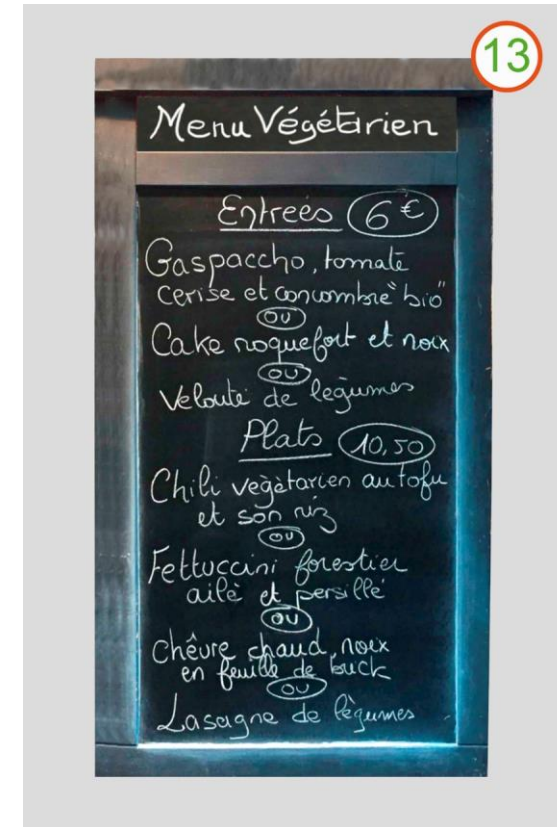 13
Menu Végétarien
Entrées 6 €
Gaspaccho, tomate
cerise et concombre "bio"
ou
Cake roquefort et noix
ou
Velouté de legumes
Plats 10,50
Chili vegètarien au tofu
et son riz
ou
Fettuccini forestier
ailè et persillé
ou
Chêvre chaud, noix
en feuille de buck
ou
Lasagne de lègumes